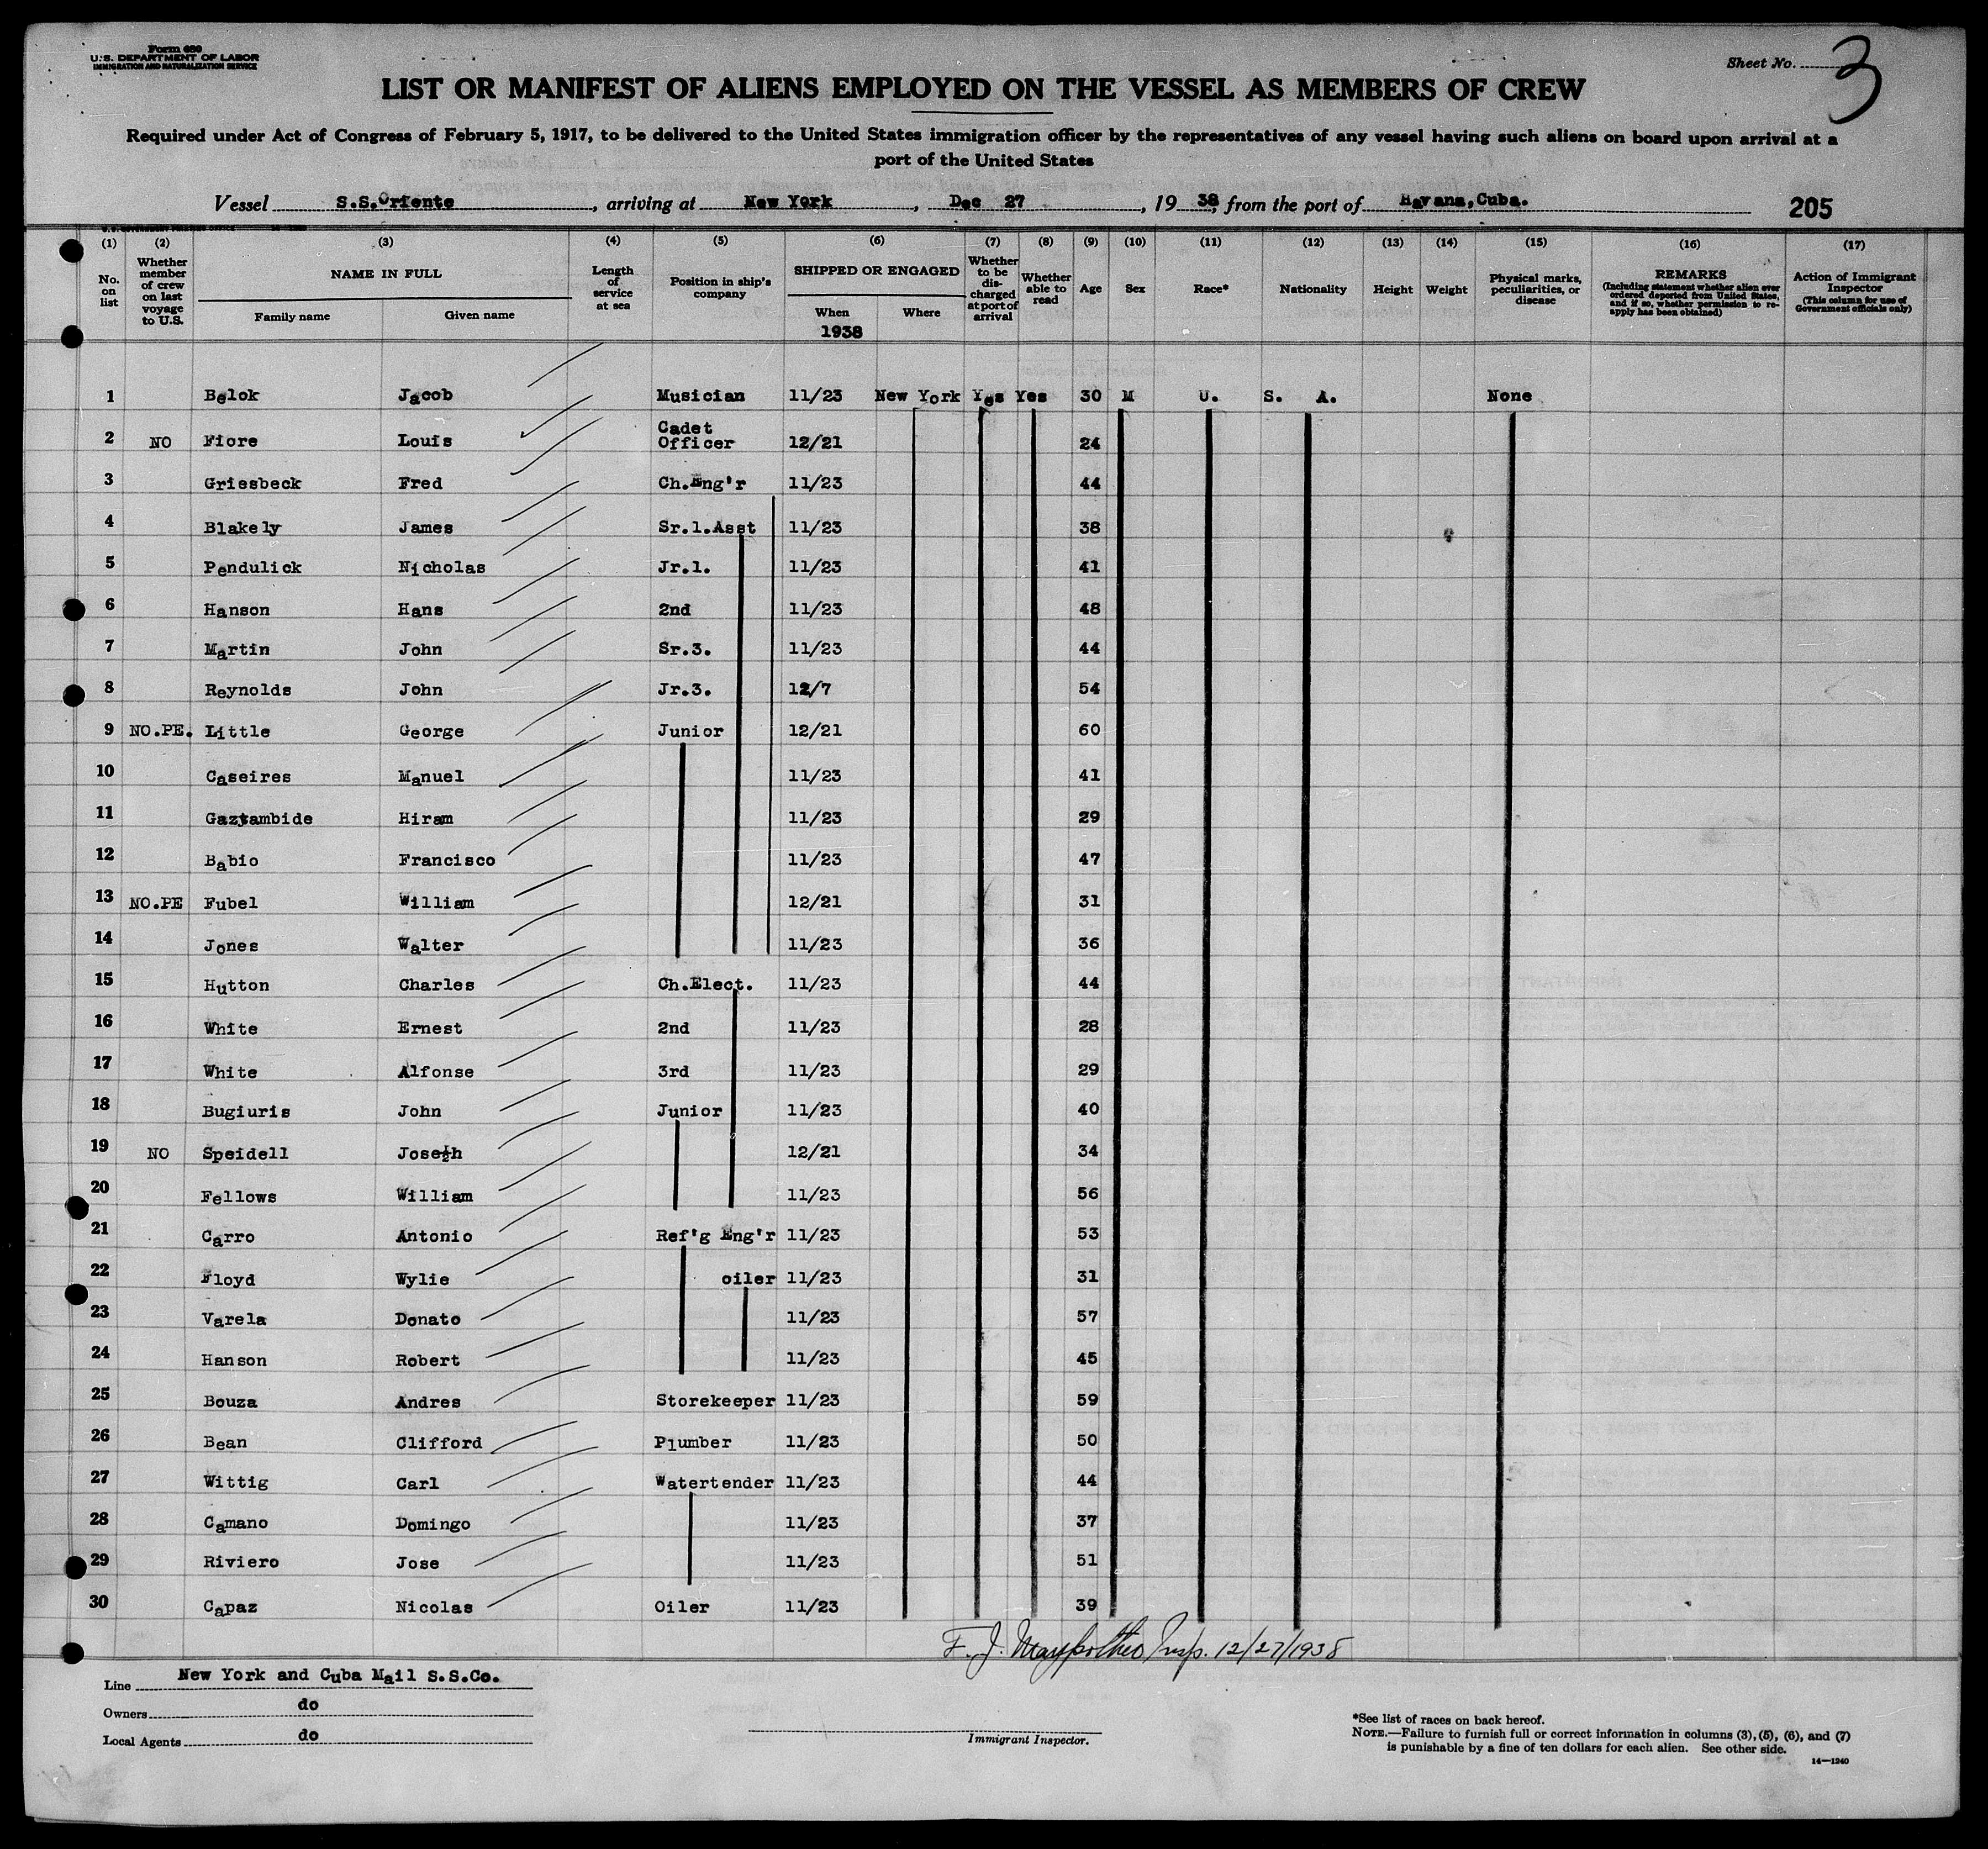 Form 680
U.S. DEPARTMENT OF LABOR
IMMIGRATION AND NATURALIZATION SERVICE
Sheet No. 3
LIST OR MANIFEST OF ALIENS EMPLOYED ON THE VESSEL AS MEMBERS OF CREW
Required under Act of Congress of February 5, 1917, to be delivered to the United States immigration officer by the representatives of any vessel having such aliens on board upon arrival at a
port of the United States
Vessel S.S.Oriente, arriving at New York, Dec 27, 1938, from the port of Havana,Cuba. 205
(1) (2) (3) (4) (5) (6) (7) (8) (9) (10) (11) (12) (13) (14) (15) (16) (17)
No. on list
Whether member of crew on last voyage to U.S.
NAME IN FULL
Family name Given name
Length of service at sea
Position in ship's company
SHIPPED OR ENGAGED
When Where
1938
Whether to be discharged at port of arrival
Whether able to read
Age
Sex
Race*
Nationality
Height
Weight
Physical marks, peculiarities, or disease
REMARKS
(Including statement whether alien ever ordered deported from United States, and if so, whether permission to reapply has been obtained)
Action of Immigrant Inspector
(This column for use of Government officials only)
1 Belok Jacob Musician 11/23 New York Yes Yes 30 M U. S. A. None
2 NO Fiore Louis Cadet Officer 12/21 24
3 Griesbeck Fred Ch.Eng'r 11/23 44
4 Blakely James Sr.1.Asst 11/23 38
5 Pendulick Nicholas Jr.1. 11/23 41
6 Hanson Hans 2nd 11/23 48
7 Martin John Sr.3. 11/23 44
8 Reynolds John Jr.3. 12/7 54
9 NO.PE. Little George Junior 12/21 60
10 Caseires Manuel 11/23 41
11 Gaztambide Hiram 11/23 29
12 Babio Francisco 11/23 47
13 NO.PE Fubel William 12/21 31
14 Jones Walter 11/23 36
15 Hutton Charles Ch.Elect. 11/23 44
16 White Ernest 2nd 11/23 28
17 White Alfonse 3rd 11/23 29
18 Bugiuris John Junior 11/23 40
19 NO Speidell Joseph 12/21 34
20 Fellows William 11/23 56
21 Carro Antonio Ref'g Eng'r 11/23 53
22 Floyd Wylie oiler 11/23 31
23 Varela Donato 11/23 57
24 Hanson Robert 11/23 45
25 Bouza Andres Storekeeper 11/23 59
26 Bean Clifford Plumber 11/23 50
27 Wittig Carl Watertender 11/23 44
28 Camano Domingo 11/23 37
29 Riviero Jose 11/23 51
30 Capaz Nicolas Oiler 11/23 39
F. J. Insp. 12/27/1938
Line New York and Cuba Mail S.S.Co.
Owners do
Local Agents do
Immigrant Inspector.
*See list of races on back hereof.
NOTE.—Failure to furnish full or correct information in columns (3), (5), (6), and (7)
is punishable by a fine of ten dollars for each alien. See other side.
14—1240